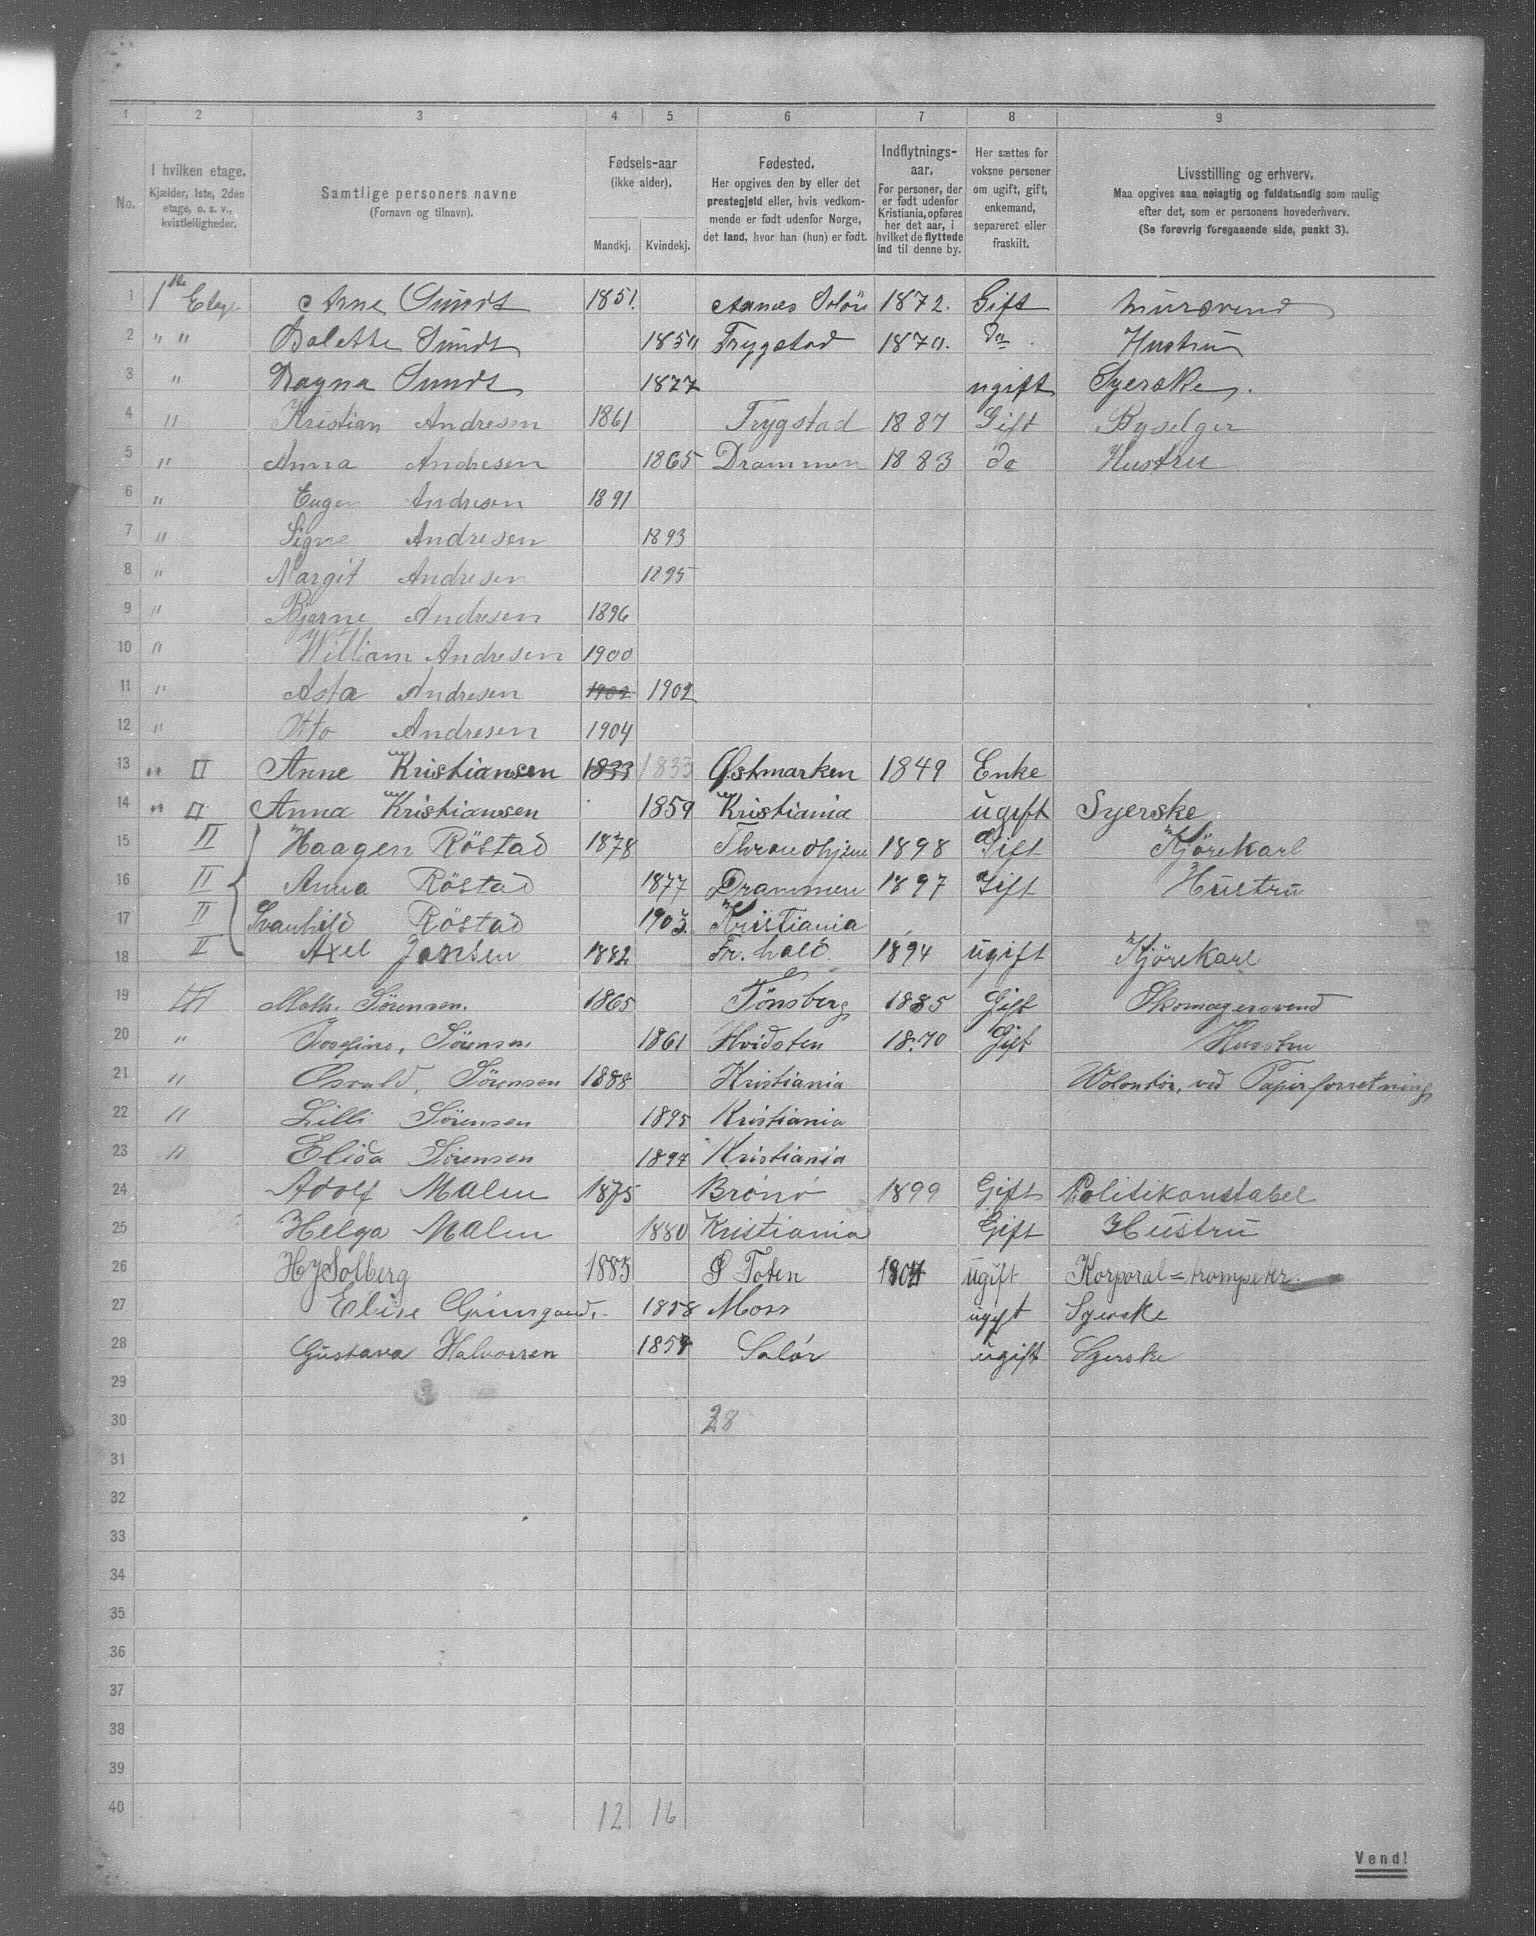 1 2 3 4 5 6 7 8 9
No.
I hvilken etage.
Kjælder, 1ste, 2den
etage, o. s. v.,
kvistleiligheder.
Samtlige personers navne
(Fornavn og tilnavn).
Fødsels-aar
(ikke alder).
Mandkj. Kvindekj.
Fødested.
Her opgives den by eller det
prestegjeld eller, hvis vedkom-
mende er født udenfor Norge,
det land, hvor han (hun) er født.
Indflytnings-
aar.
For personer, der
er født udenfor
Kristiania, opføres
her det aar, i
hvilket de flyttede
ind til denne by.
Her sættes for
voksne personer
om ugift, gift,
enkemand,
separeret eller
fraskilt.
Livsstilling og erhverv.
Maa opgives saa nøiagtig og fuldstændig som mulig
efter det, som er personens hovederhverv.
(Se forøvrig foregaaende side, punkt 3).
1 1ste Etage Arne Sundt 1851. Aanæs Solör 1872. Gift Mursvend
2 " " Bolette Sundt 1850 Trygstad 1870. do. Hustru
3 " Ragna Sundt 1877 ugift Syerske.
4 " Kristian Andresen 1861 Trygstad 1887 Gift Byselger
5 " Anna Andresen 1865 Drammen 1883 do Hustru
6 " Eugen Andresen 1891
7 " Signe Andresen 1893
8 " Margit Andresen 1895
9 " Bjarne Andresen 1896
10 " William Andresen 1900
11 " Asta Andresen 1902 1902
12 " Otto Andresen 1904
13 " II Anne Kristiansen 1833 1833 Østmarken 1849 Enke
14 " II Anna Kristiansen 1859 Kristiania ugift Syerske
15 II Haagen Röstad 1878 Throndhjem 1898 Gift Kjörekarl
16 II Anna Röstad 1877 Drammen 1897 Gift Hustru
17 II Svanhild Röstad 1903 Kristiania
18 II Axel Jansen 1882 Fr. hald. 1894 ugift Kjörekarl
19 III Math. Sörensen. 1865 Tönsberg 1885 Gift Skomagersvend
20 " Josefine, Sörensen 1861 Hvidsten 1870 Gift Hustru
21 " Osvald, Sörensen 1888 Kristiania Volontör, ved Papirforretning
22 " Lilli Sörensen 1895 Kristiania
23 " Elida Sörensen 1897 Kristiania
24 Adolf Malm 1875 Brönö 1899 Gift Politikonstabel
25 Helga Malm 1880 Kristiania Gift Hustru
26 Hj Solberg 1885 Ø Toten 1904 ugift Korporal = trompeter.
27 Elise 1858 Moss ugift Syerske
28 Gustava Halvorsen 1857 Solör ugift Syerske
29
30 28
31
32
33
34
35
36
37
38
39
40 12 16
Vend!